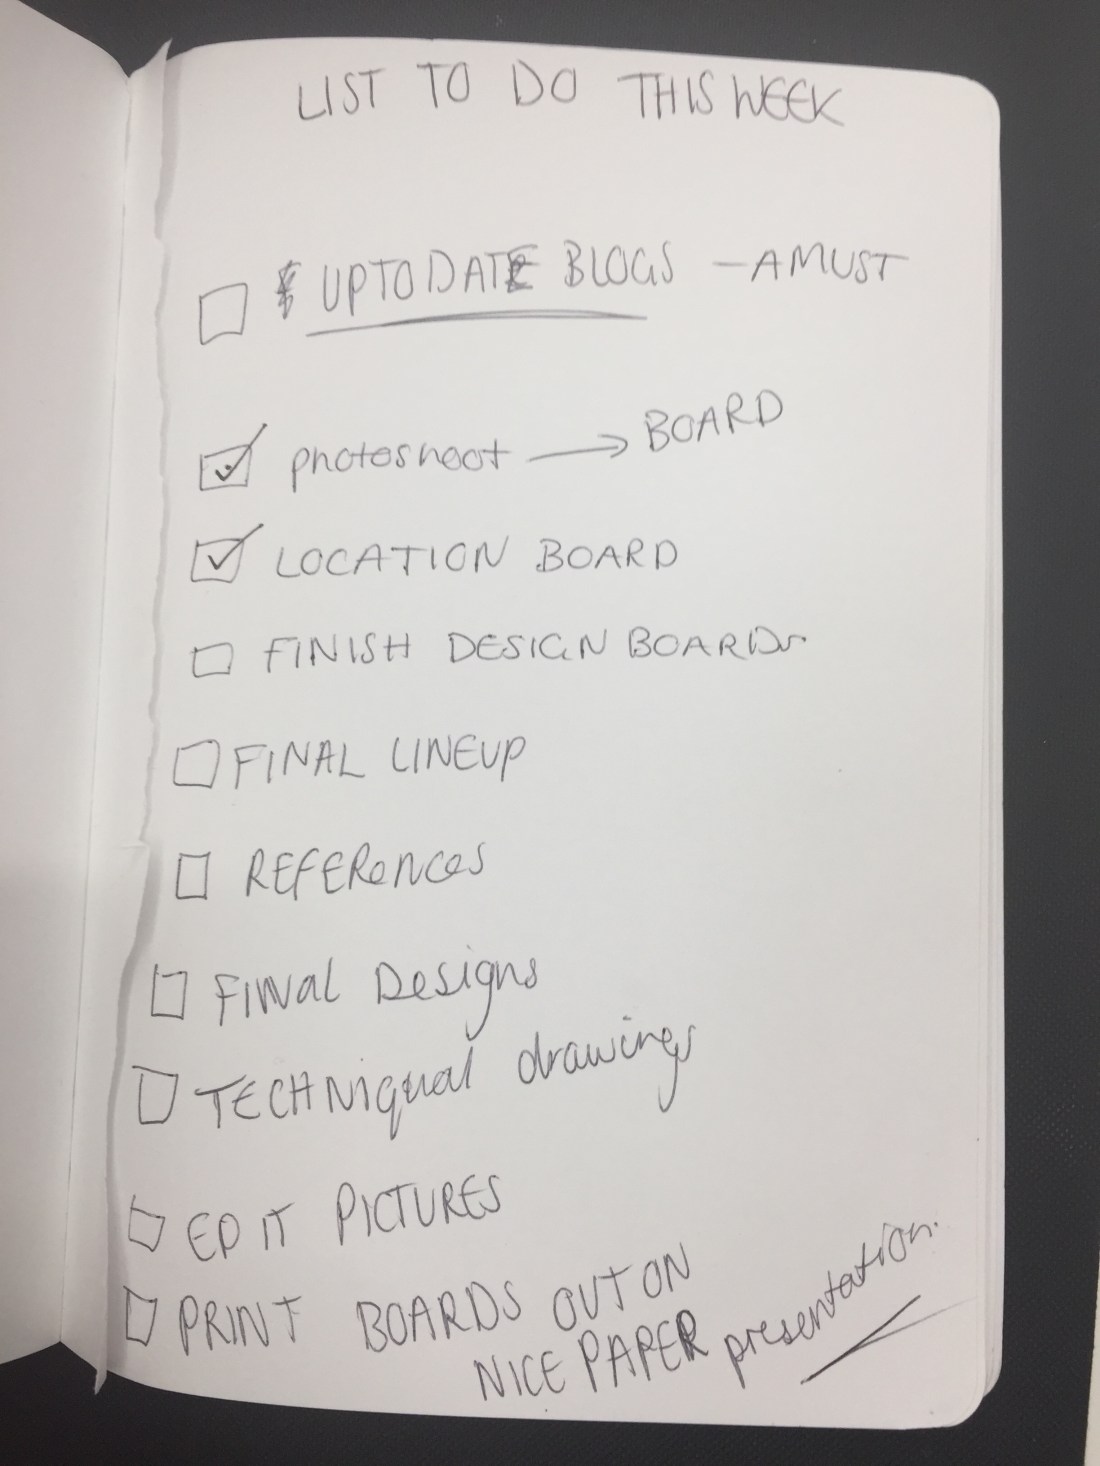 LIST TO DO THIS WEEK
UPTODATE BLOGS - A MUST
photoshoot → BOARD
LOCATION BOARD
FINISH DESIGN BOARDS
FINAL LINEUP
REFERENCES
FINAL Designs
TECHNiqual drawings
EDIT PICTURES
PRINT BOARDS OUT ON
NICE PAPER presentation.